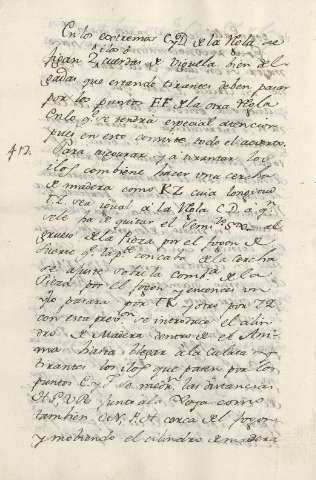 En los extremos C, y D. de la Regla se
fixan 2 ilos ó cuerdas de Viguella bien del
gadas que estando tirantes deben pasar
por los puntos E.F. de la otra Regla
En lo q.e se tendrá especial atencion
pues en esto consiste todo el acierto.
412. Para asegurar y atirantar los
ilos, combiene hacer una cercha
de madera como KL cuia longitud
sea igual á la Regla C.D. a q.e
se le ha de quitar el semi
grueso de la Pieza por el fogon de
suerte q.e concabo de la cercha
se ajuste sobre la comb.a de la
Pieza por el fogon y entonces un
ylo pasara por y otro por
con esta se introduce el cilin
dro de Madera dentro de el Ani
ma hasta llegar a la culata y
tirantes los ilos que pasen por los
puntos E. y F. se medi.n las distancias
junto a la como
tambien cerca del fogon
y mobiendo el cilindro de madera